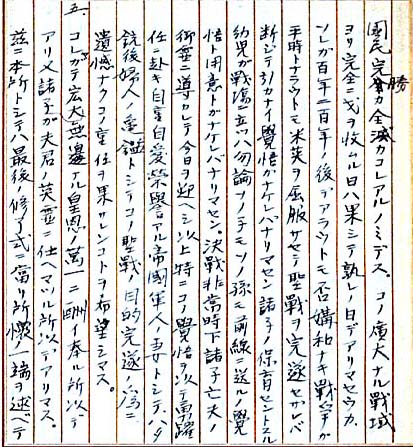 国民完勝カ全滅カコレアルノミデス。コノ廣大ナル戦域
ヨリ完全ニ戈ヲ收ムル日ハ果シテ孰レノ日デアリマセウカ
ソレガ百年二百年ノ後デアラウトモ否媾和ナキ戦争ガ
平時トナラウトモ米英ヲ屈服サセテ聖戦ヲ完遂セナケレバ
断ジテ引カナイ覺悟ガナケレバナリマセン諸子ノ保育セントスル
幼児ガ戦場ニ立ツハ勿論ソノ子モソノ孫モ前線ニ送ルノ覺
悟ト用意トガナケレバナリマセン。決戦非常時下諸子亡夫ノ
御霊ニ導カレテ今日ヲ迎ヘシ以上特ニコノ覺悟ヲ以テ勇躍
任ニ赴キ自重自愛榮譽アル帝國軍人ノ妻トシテハタ
銃後婦人ノ亀鑑トシテコノ聖戦ノ目的完遂ノ為ニ
遺憾ナクコノ重任ヲ果サレンコトヲ希望シマス。
五、コレガテ宏大無邊ナル皇恩ノ萬一ニ酬イ奉ル所以デ
アリ又諸子ガ夫君ノ英霊ニ仕ヘマツル所以デアリマス。
茲ニ本所トシテハ最後ノ修了式ニ當リ所懐ノ一端ヲ述ベテ